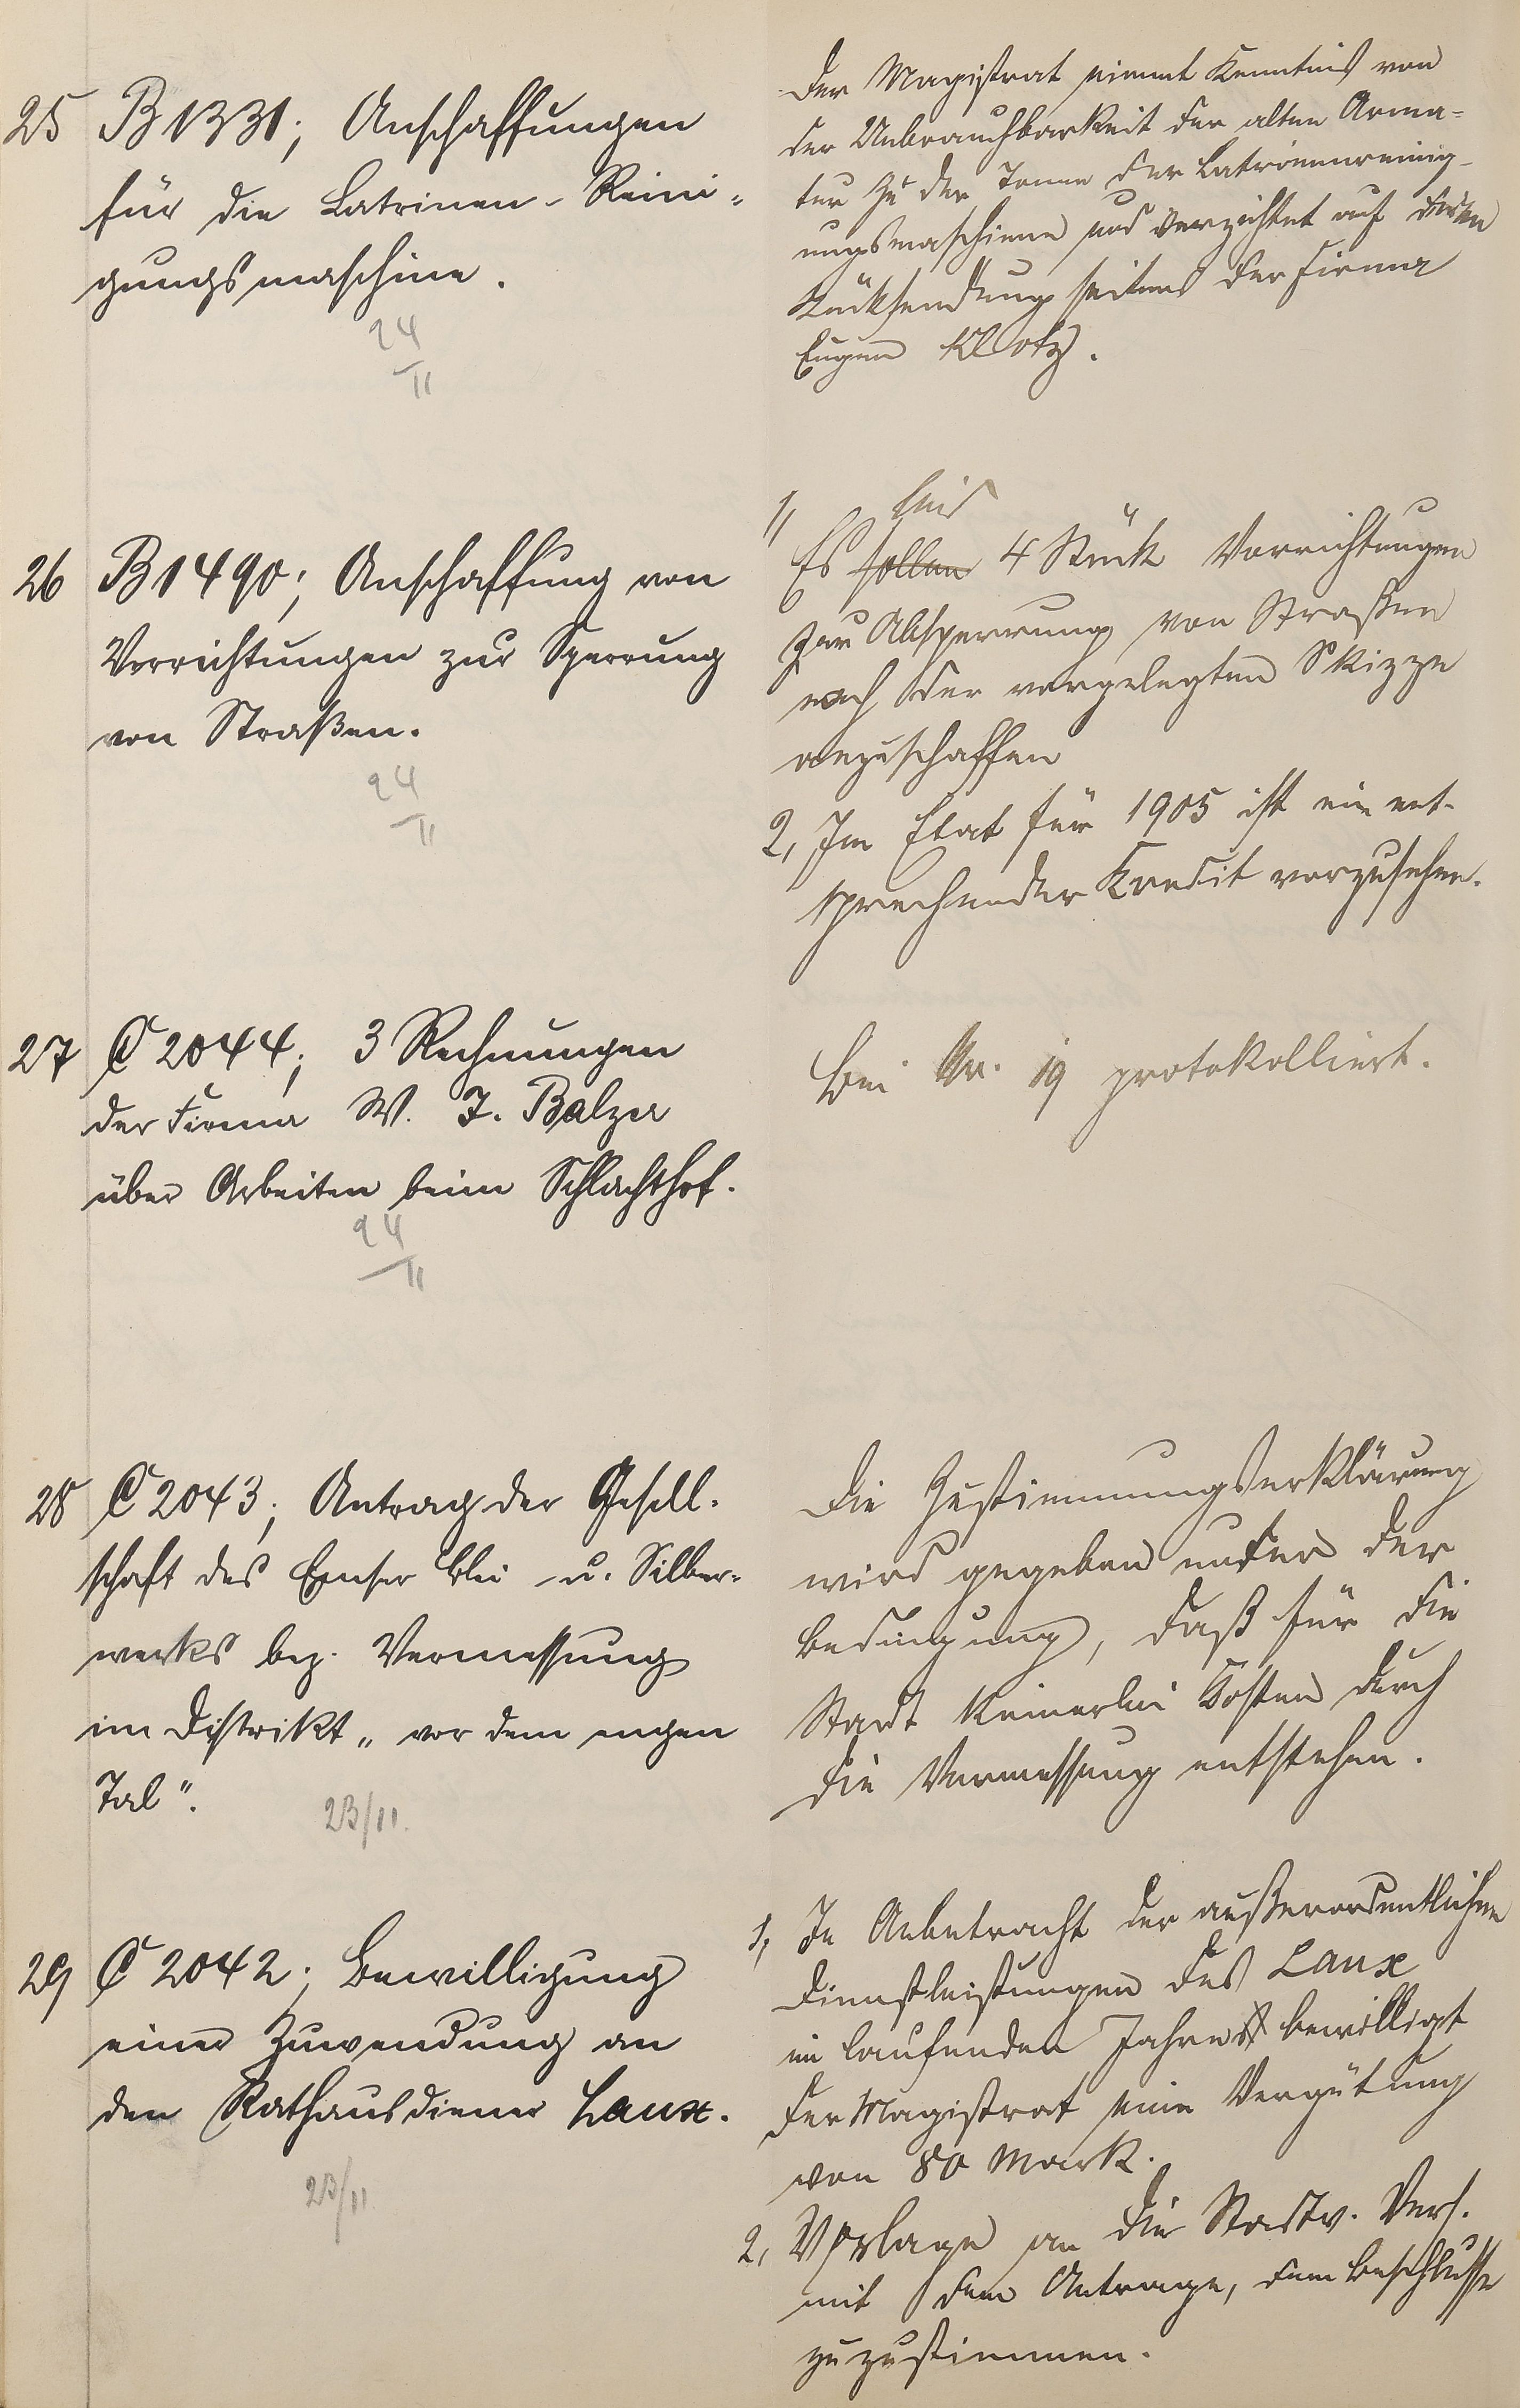 25 B 1331; Anschaffungen
für die Latrinen-Reini-
gungsmaschine.
24
/11
Der Magistrat nimmt Kenntnis von
der Unbrauchbarkeit der alten Arma-
tur zu der Tonne der Latrinenreinig-
ungsmaschine und verzichtet auf deren
Rücksendung seitens der Firma
Eugen Klotz.
26 B 1490; Anschaffung von
Vorrichtungen zur Sperrung
von Straßen.
24
/11
1,
sind
Es sollen 4 Stück Vorrichtungen
zur Absperrung von Straßen
nach der vorgelegten Skizze
anzuschaffen
2, Im Etat für 1905 ist ein ent-
sprechender Kredit vorzusehen.
27 C 2044; 3 Rechnungen
der Firma W. J. Balzer
über Arbeiten beim Schlachthof.
24
/11
Bei Nr. 19 protokolliert.
28 C 2043; Antrag der Gesell-
schaft des Emser Blei- u. Silber-
werks bez. Vermessung
im Distrikt „vor dem engen
Tal".
23/11.
Die Zustimmungserklärung
wird gegeben unter der
Bedingung, daß für die
Stadt keinerlei Kosten durch
die Vermessung entstehen.
29 C 2042; Bewilligung
einer Zuwendung an
den Rathausdiener Laux.
23/11
1, In Anbetracht der außerordentlichen
Dienstleistungen des Laux
im laufenden Jahre bewilligt
der Magistrat eine Vergütung
von 80 Mark.
2, Vorlage an die Stadtv. Vers.
mit dem Antrage, dem Beschlusse
zuzustimmen.